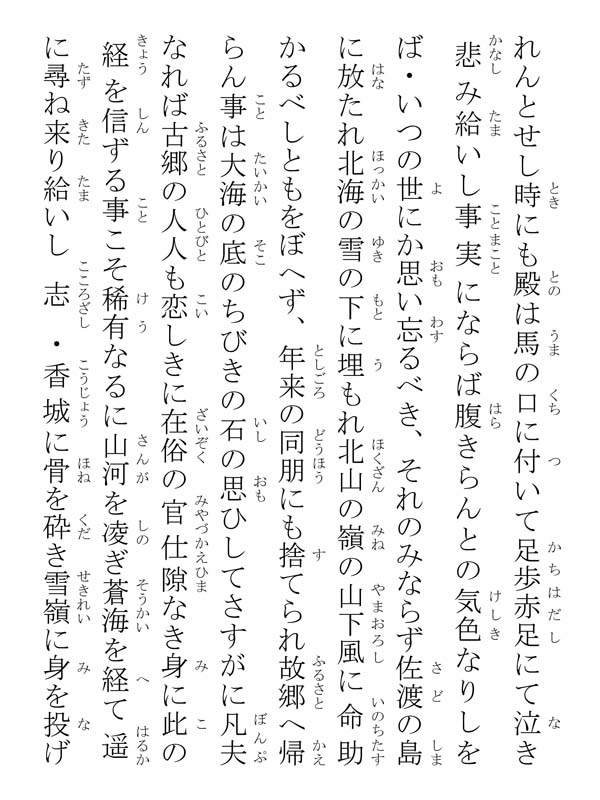 れんとせし時にも殿は馬の口に付いて足歩赤足にて泣き
悲み給いし事実にならば腹きらんとの気色なりしを
ば・いつの世にか思い忘るべき、それのみならず佐渡の島
に放たれ北海の雪の下に埋もれ北山の嶺の山下風に命助
かるべしともをぼへず、年来の同朋にも捨てられ故郷へ帰
らん事は大海の底のちびきの石の思ひしてさすがに凡夫
なれば古郷の人人も恋しきに在俗の官仕隙なき身に此の
経を信ずる事こそ稀有なるに山河を凌ぎ蒼海を経て遥
に尋ね来り給いし志・香城に骨を砕き雪嶺に身を投げ